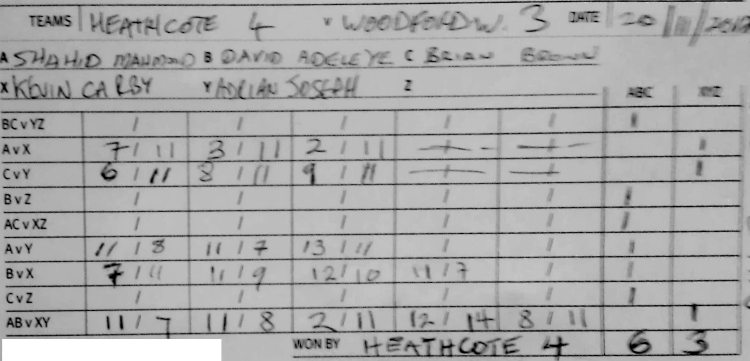 TEAMS HEATHCOTE 4 v WOODFORD W. 3 DATE 20/11/2017
A SHAHID MAHMOOD B DAVID ADELEYE C BRIAN BROWN
X KEVIN CARBY Y ADRIAN JOSEPH Z ABC XYZ
BC v YZ / / / / / 1
A v X 7 / 11 3 / 11 2 / 11 / / 1
C v Y 6 / 11 8 / 11 9 / 11 / / 1
B v Z / / / / / 1
AC v XZ / / / / / 1
A v Y 11 / 8 11 / 7 13 / 11 / / 1
B v X 7 / 11 11 / 9 12 / 10 11 / 7 / 1
C v Z / / / / / 1
AB v XY 11 / 7 11 / 8 2 / 11 12 / 14 8 / 11 1
WON BY HEATHCOTE 4 6 3